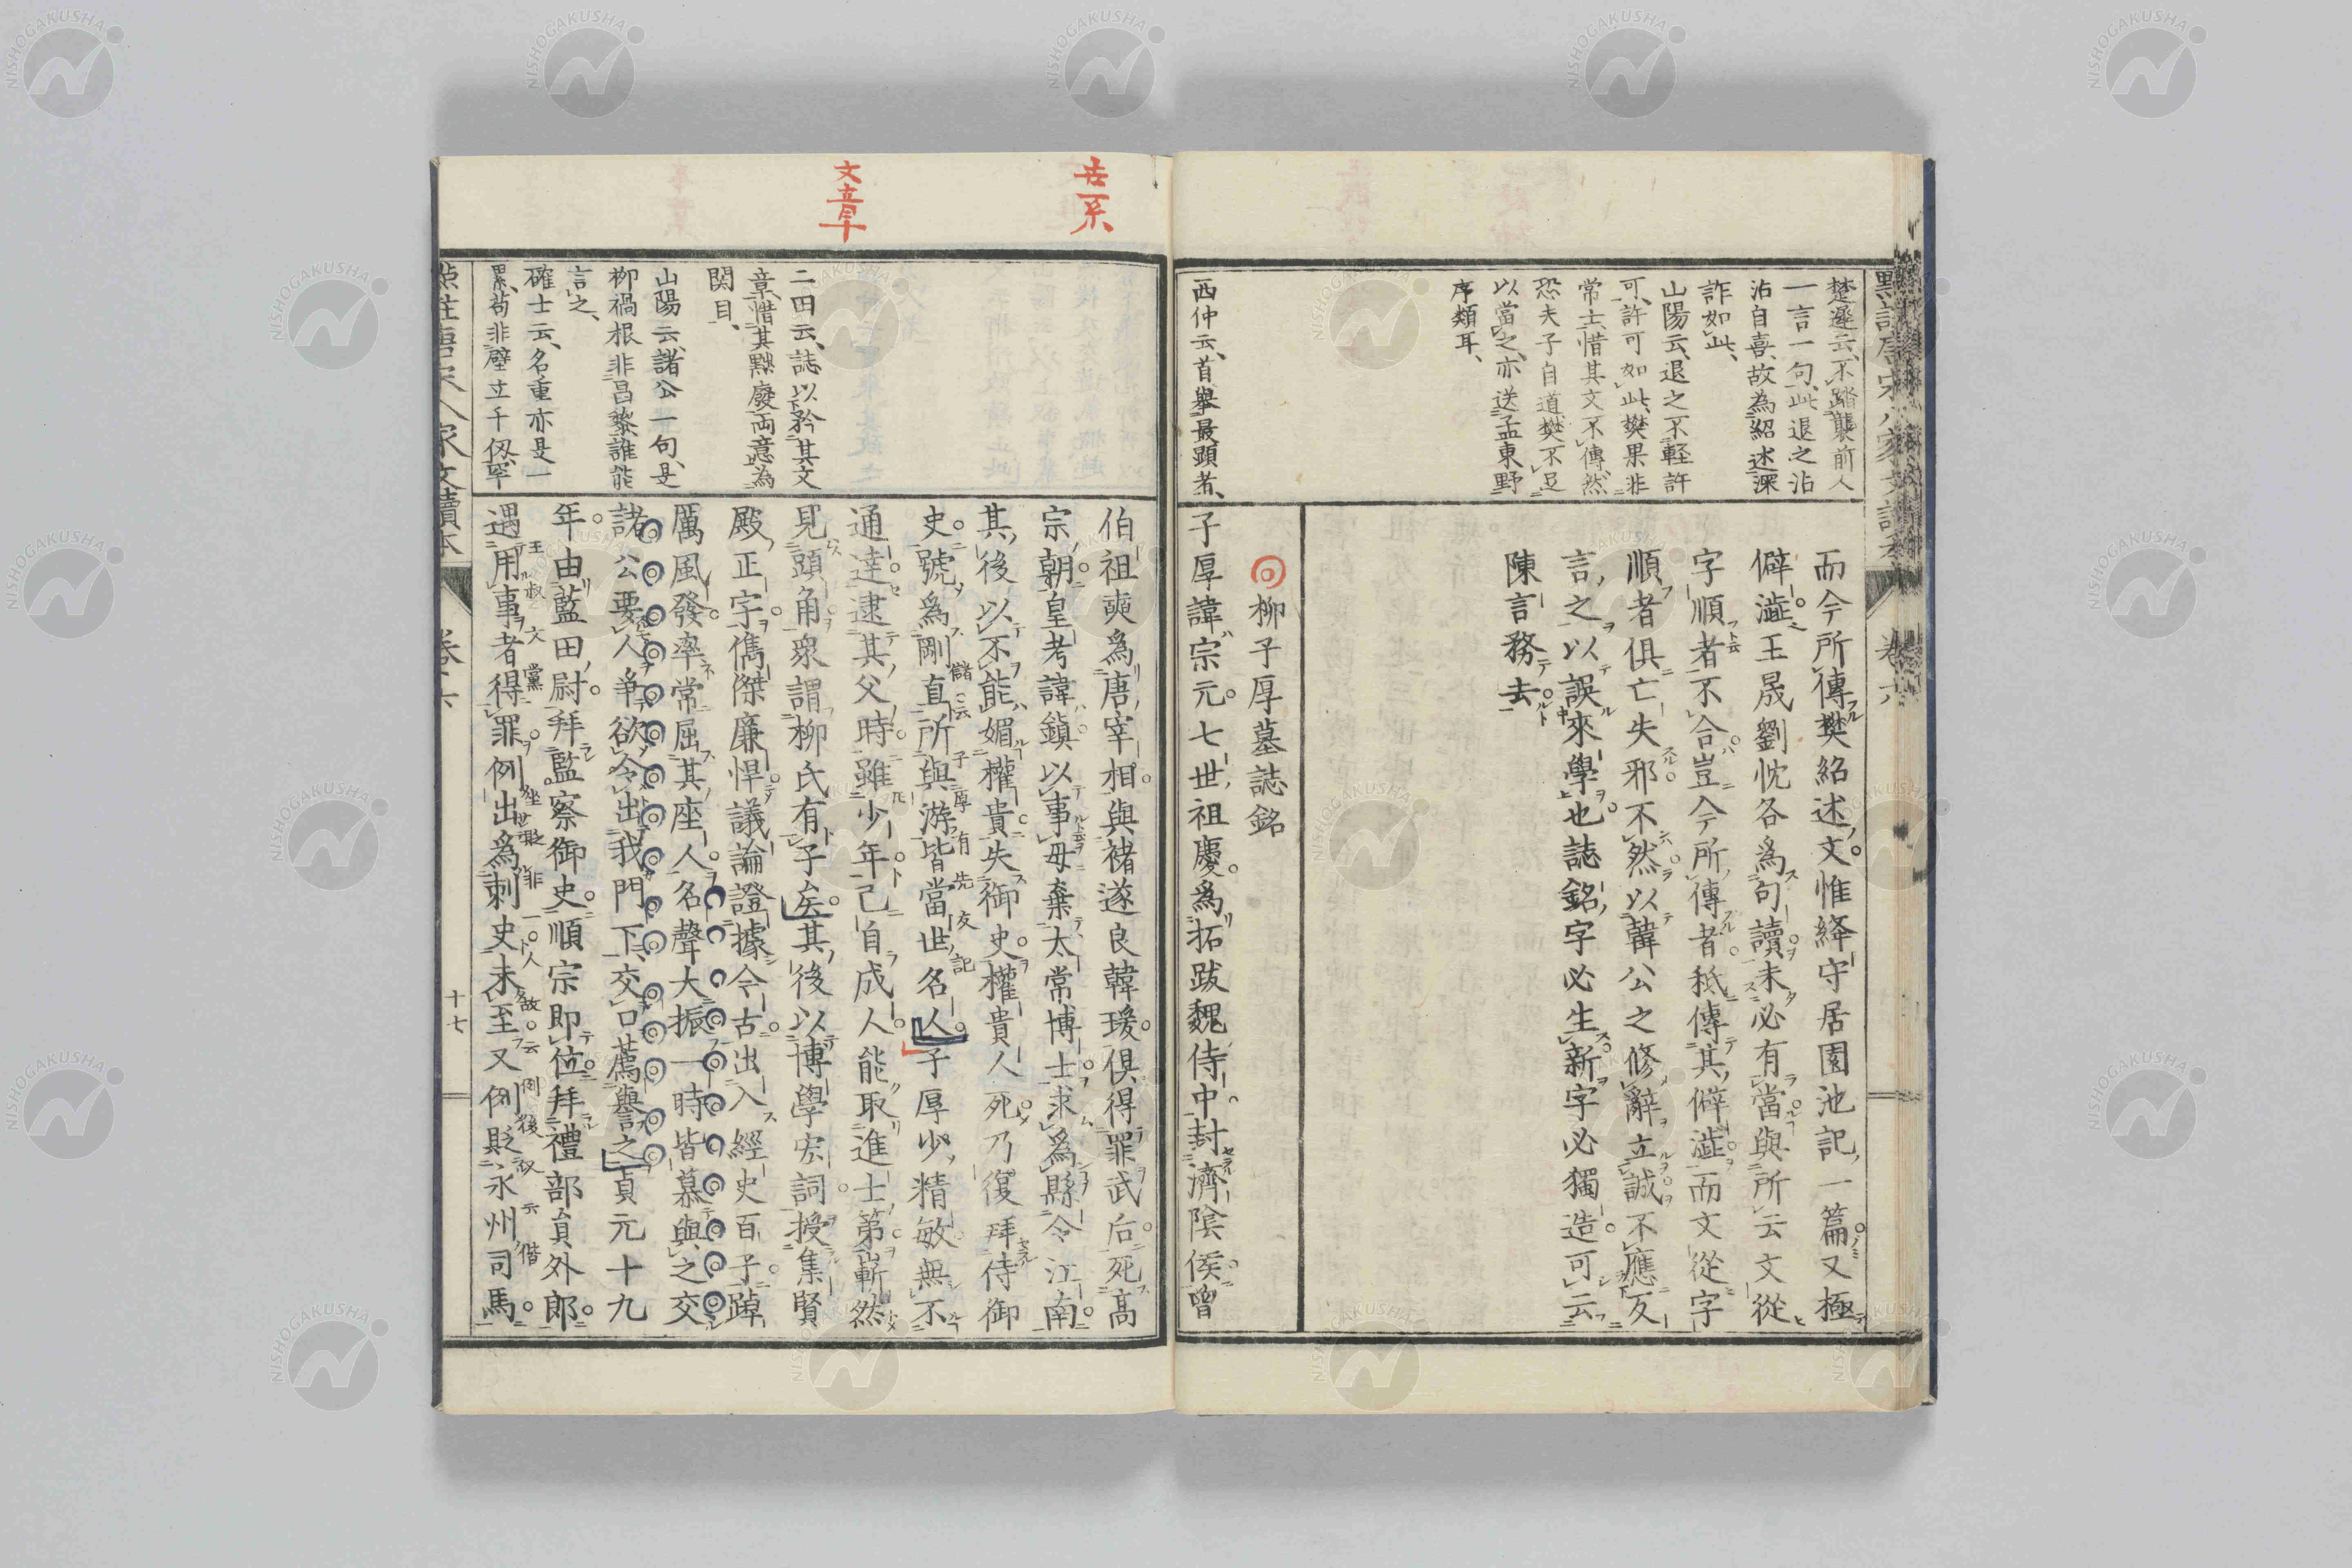 楚邅云、不踏襲前人
一言一句、此退之沾
沾自喜、故為紹述深
詐如此、
山陽云、退之不輕許
可、許可如此、樊果非
常士、惜其文不傳、然
恐夫子自道、樊不足
以當之、亦送孟東野
序類耳、
西仲云、首舉最顕者、
而今所傳樊紹述文惟絳守居園池記一篇又極
僻澁王晟劉忱各為句讀未必有當與所云文從
字順者不合豈今所傳者秪傳其僻澁而文從字
順者俱亡失邪不然以韓公之修辭立誠不應反
言之以誤來學也誌銘字必生新字必獨造可云
陳言務去
柳子厚墓誌銘
子厚諱宗元七世祖慶為拓跋魏侍中封濟陰侯曾
卷六
世系
文章
二田云、誌以矜其文
章、惜其黜廢両意為
関目、
山陽云、諸公一句、是
柳禍根、非昌黎、誰能
言之、
確士云、名重亦是一
累、苟非壁立千仭、罕
伯祖奭為唐宰相與褚遂良韓瑗俱得罪武后死高
宗朝皇考諱鎮以事母棄太常博士求為縣令江南
其後以不能媚權貴失御史權貴人死乃復拜侍御
史號為剛直所與游皆當世名人子厚少精敏無不
通達逮其父時雖少年已自成人能取進士第嶄然
見頭角衆謂柳氏有子矣其後以博學宏詞授集賢
殿正字儁傑廉悍議論證據今古出入經史百子踔
厲風發率常屈其座人名聲大振一時皆慕與之交
諸公要人爭欲令出我門下交口薦譽之貞元十九
年由藍田尉拜監察御史順宗即位拜禮部員外郎
遇用事者得罪例出為刺史未至又例貶永州司馬
十七